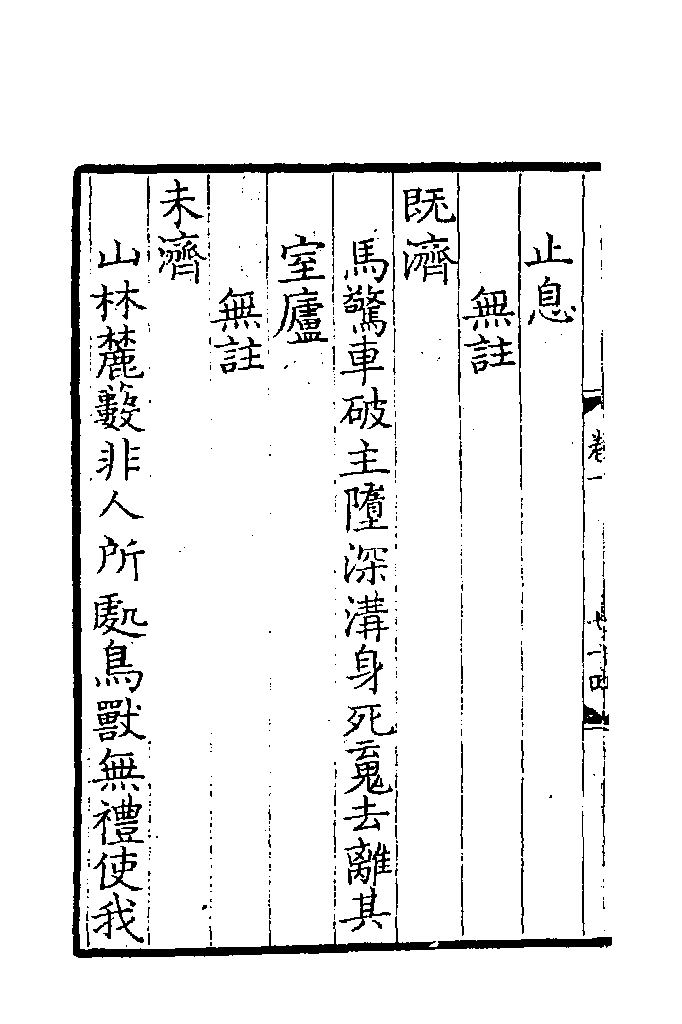 止息
無註
既濟
馬驚車破主墮深溝身死䰟去離其
室廬
無註
未濟
山林麓藪非人所處鳥獸無禮使我
卷一
七十四